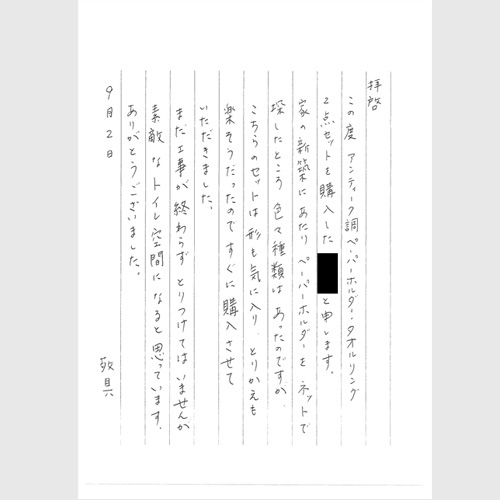 拝啓
この度 アンティーク調ペーパーホルダー・タオルリング
2点セットを購入した と申します。
家の新築にあたり ペーパーホルダーを ネットで
探したところ 色々種類は あったのですが、
こちらのセットは形も気に入り、とりかえも
楽そうだったので すぐに購入させて
いただきました。
まだ工事が終わらず とりつけては いませんが
素敵なトイレ空間になると思っています。
ありがとうございました。
敬具
9月2日